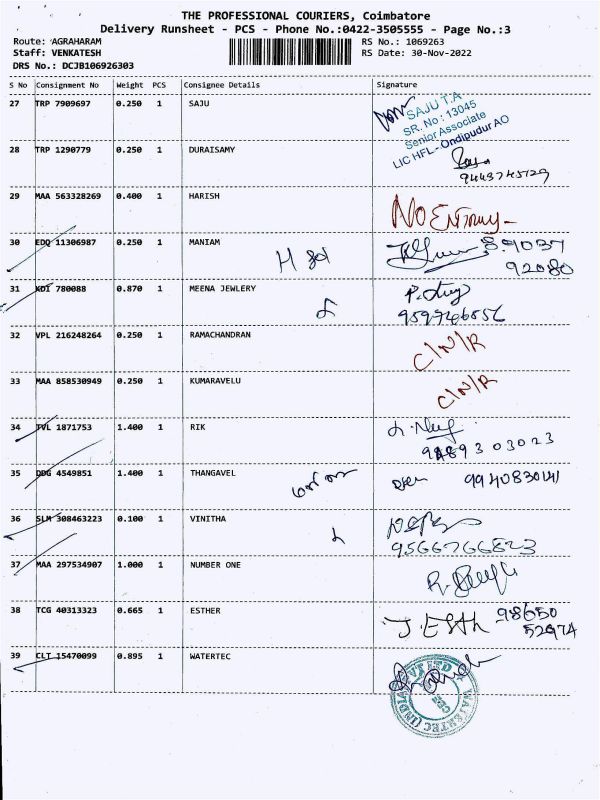 THE PROFESSIONAL COURIERS, Coimbatore
Delivery Runsheet - PCS - Phone No.:0422-3505555 - Page No.:3
Route: AGRAHARAM RS No.: 1069263
Staff: VENKATESH RS Date: 30-Nov-2022
DRS No.: DCJB106926303
S No Consignment No Weight PCS Consignee Details Signature
27 TRP 7909697 0.250 1 SAJU
SAJU T.A
SR. No : 13045
Senior Associate
LIC HFL - Ondipudur AO
28 TRP 1290779 0.250 1 DURAISAMY
9443745729
29 MAA 563328269 0.400 1 HARISH
NO ENTRY
30 EDQ 11306987 0.250 1 MANIAM
89037
92080
31 KDI 780088 0.870 1 MEENA JEWLERY
32 VPL 216248264 0.250 1 RAMACHANDRAN C/N/R
33 MAA 858530949 0.250 1 KUMARAVELU C/N/R
34 TVL 1871753 1.400 1 RIK
35 DDG 4549851 1.400 1 THANGAVEL
36 SLM 308463223 0.100 1 VINITHA
9566766823
37 MAA 297534907 1.000 1 NUMBER ONE
38 TCG 40313323 0.665 1 ESTHER J. Esth 98650
52974
39 CLT 15470099 0.895 1 WATERTEC
WATERTEC (INDIA) PVT LTD
CBE